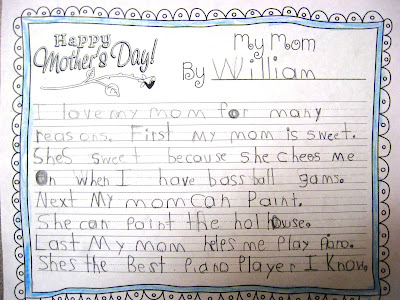 Happy
Mother's Day!
My Mom
By William
I love my mom for many
reasons. First my mom is sweet.
She's sweet because she chees me
on when I have bassball gams.
Next My mom can Paint.
She can paint the hol house.
Last My mom helps me Play Piano.
She's the Best Piano Player I Know.